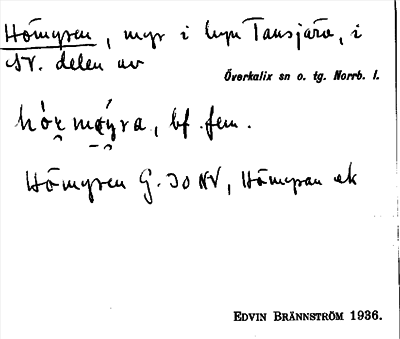 Hömyren, myr i byn Tansjärv, i
NV. delen av
Överkalix sn o. tg. Norrb. l.
bf. fem.
Hömyren G. 30 NV, Hömyran ek
EDVIN BRÄNNSTRÖM 1936.